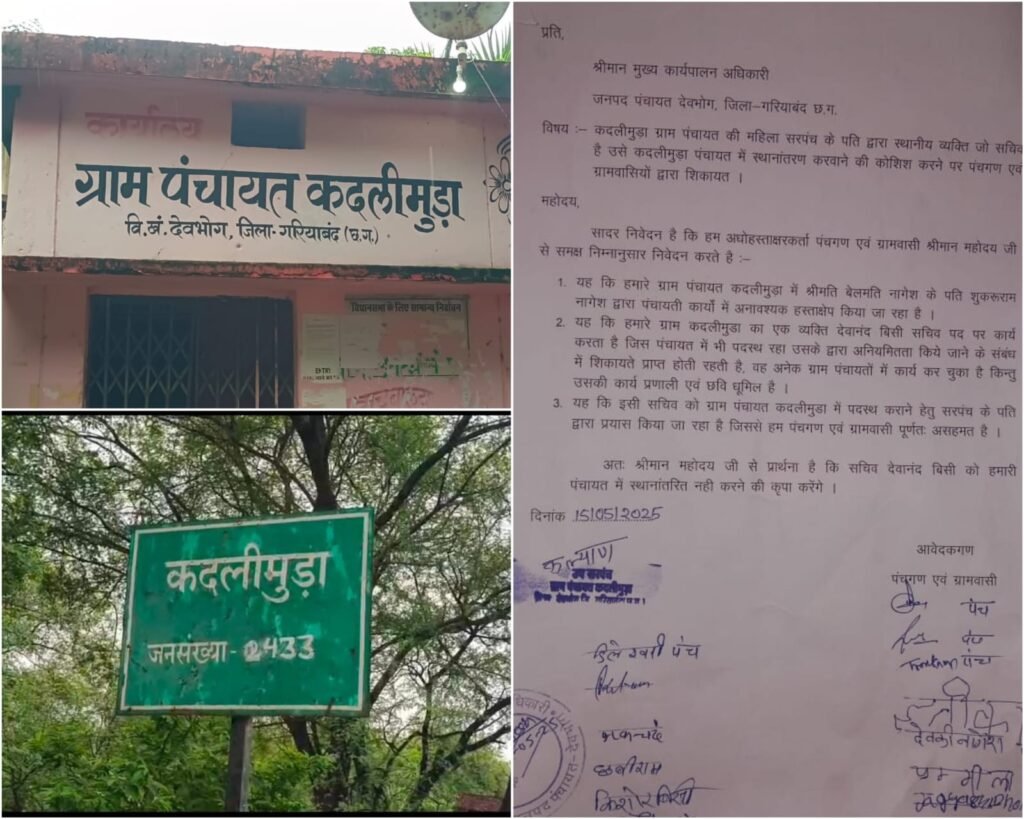 कार्यालय
ग्राम पंचायत कदलीमुड़ा
वि.खं.देवभोग, जिला-गरियाबंद (छ.ग.)
विधानसभा के लिए सामान्य निर्वाचन
कदलीमुड़ा
जनसंख्या - 2433
प्रति,
श्रीमान मुख्य कार्यपालन अधिकारी
जनपद पंचायत देवभोग, जिला-गरियाबंद छ.ग.
विषय :– कदलीमुड़ा ग्राम पंचायत की महिला सरपंच के पति द्वारा स्थानीय व्यक्ति जो सचिव
है उसे कदलीमुड़ा पंचायत में स्थानांतरण करवाने की कोशिश करने पर पंचगण एवं
ग्रामवासियों द्वारा शिकायत ।
महोदय,
सादर निवेदन है कि हम अधोहस्ताक्षरकर्ता पंचगण एवं ग्रामवासी श्रीमान महोदय जी
से समक्ष निम्नानुसार निवेदन करते है :–
1. यह कि हमारे ग्राम पंचायत कदलीमुड़ा में श्रीमति बेलमति नागेश के पति शुकरूराम
नागेश द्वारा पंचायती कार्यो में अनावश्यक हस्ताक्षेप किया जा रहा है ।
2. यह कि हमारे ग्राम कदलीमुड़ा का एक व्यक्ति देवानंद बिसी सचिव पद पर कार्य
करता है जिस पंचायत में भी पदस्थ रहा उसके द्वारा अनियमितता किये जाने के संबंध
में शिकायते प्राप्त होती रहती है, वह अनेक ग्राम पंचायतों में कार्य कर चुका है किन्तु
उसकी कार्य प्रणाली एवं छवि धूमिल है ।
3. यह कि इसी सचिव को ग्राम पंचायत कदलीमुड़ा में पदस्थ कराने हेतु सरपंच के पति
द्वारा प्रयास किया जा रहा है जिससे हम पंचगण एवं ग्रामवासी पूर्णतः असहमत है ।
अतः श्रीमान महोदय जी से प्रार्थना है कि सचिव देवानंद बिसी को हमारी
पंचायत में स्थानांतरित नही करने की कृपा करेंगे ।
दिनांक 15/05/2025
आवेदकगण
पंचगण एवं ग्रामवासी
कल्याण
उप सरपंच
ग्राम पंचायत कदलीमुड़ा
पंच
पंच
पंच
पंच
छबीराम
किशोर बिसी